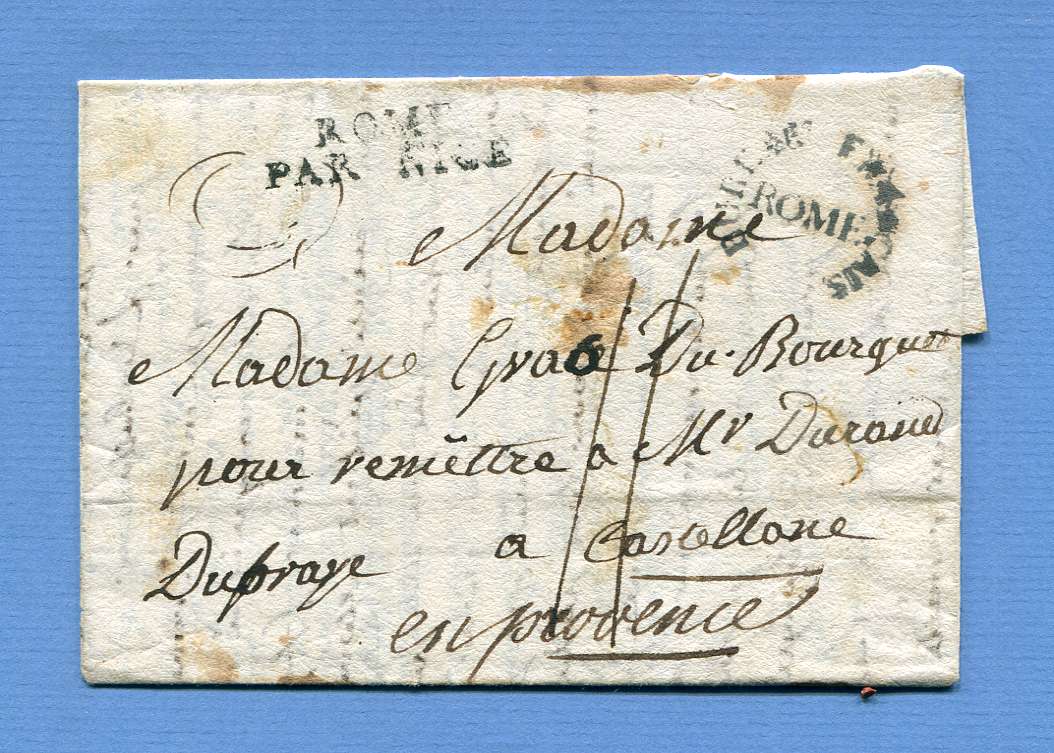 ROME
PAR NICE
BUREAU FRANÇAIS
ROME
Madame
Madame Gras Du Bourguet
pour remettre a Mr Durand
Dupraye a Castellane
en provence